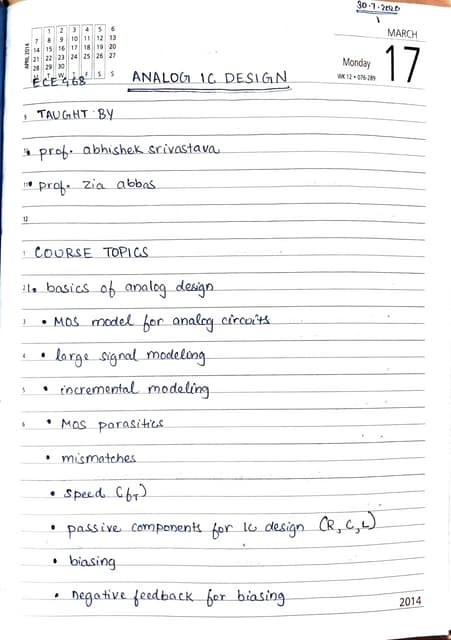 30-7-2020
APRIL 2014
1 2 3 4 5 6
7 8 9 10 11 12 13
14 15 16 17 18 19 20
21 22 23 24 25 26 27
28 29 30
M T W T F S S
MARCH
Monday 17
WK 12 • 076-289
ECE468 ANALOG IC DESIGN
9 TAUGHT BY
prof. abhishek srivastava
prof. zia abbas
12
1 COURSE TOPICS
1. basics of analog design
3 • MOS model for analog circuits
4 • large signal modelong
5 • incremental modeling
6 • MOS parasitics
• mismatches
• speed (fT)
• passive components for IC design (R, C, L)
• biasing
• negative feedback for biasing
2014